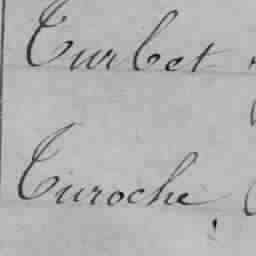 Turbet
Turoche